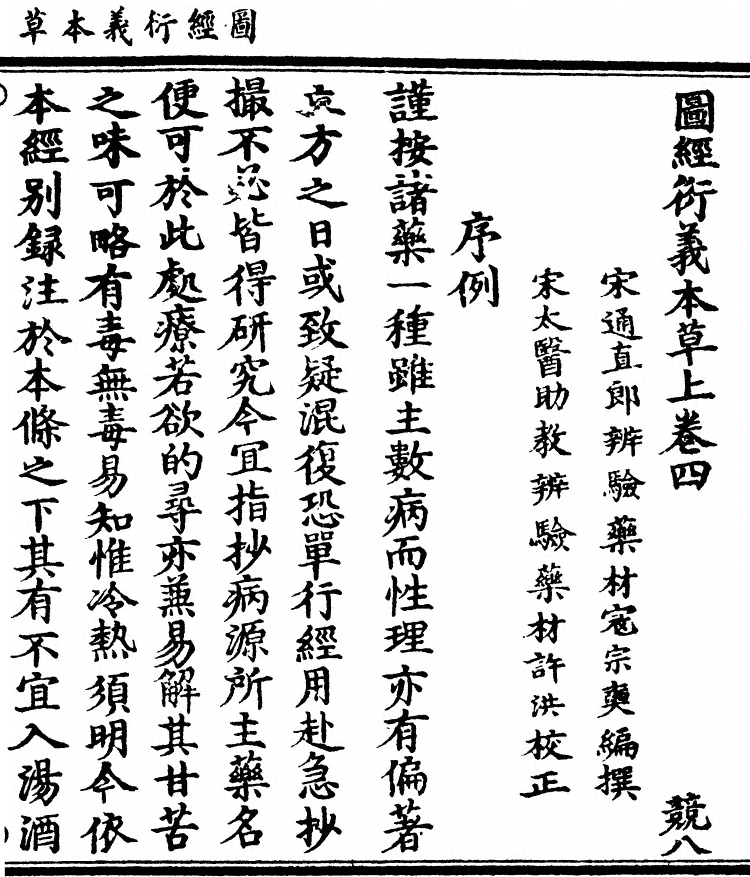 圖經衍義本草
圖經衍義本草上卷四 競八
宋通直郎辨驗藥材寇宗奭編撰
宋太醫助教辨驗藥材許洪校正
序例
謹按諸藥一種雖主數病而性理亦有偏著
方之日或致疑混復恐單行經用赴急抄
撮不皆得研究今宜指抄病源所主藥名
便可於此處療若欲的尋亦兼易解其甘苦
之味可略有毒無毒易知惟冷熱須明今依
本經別録注於本條之下其有不宜入湯酒